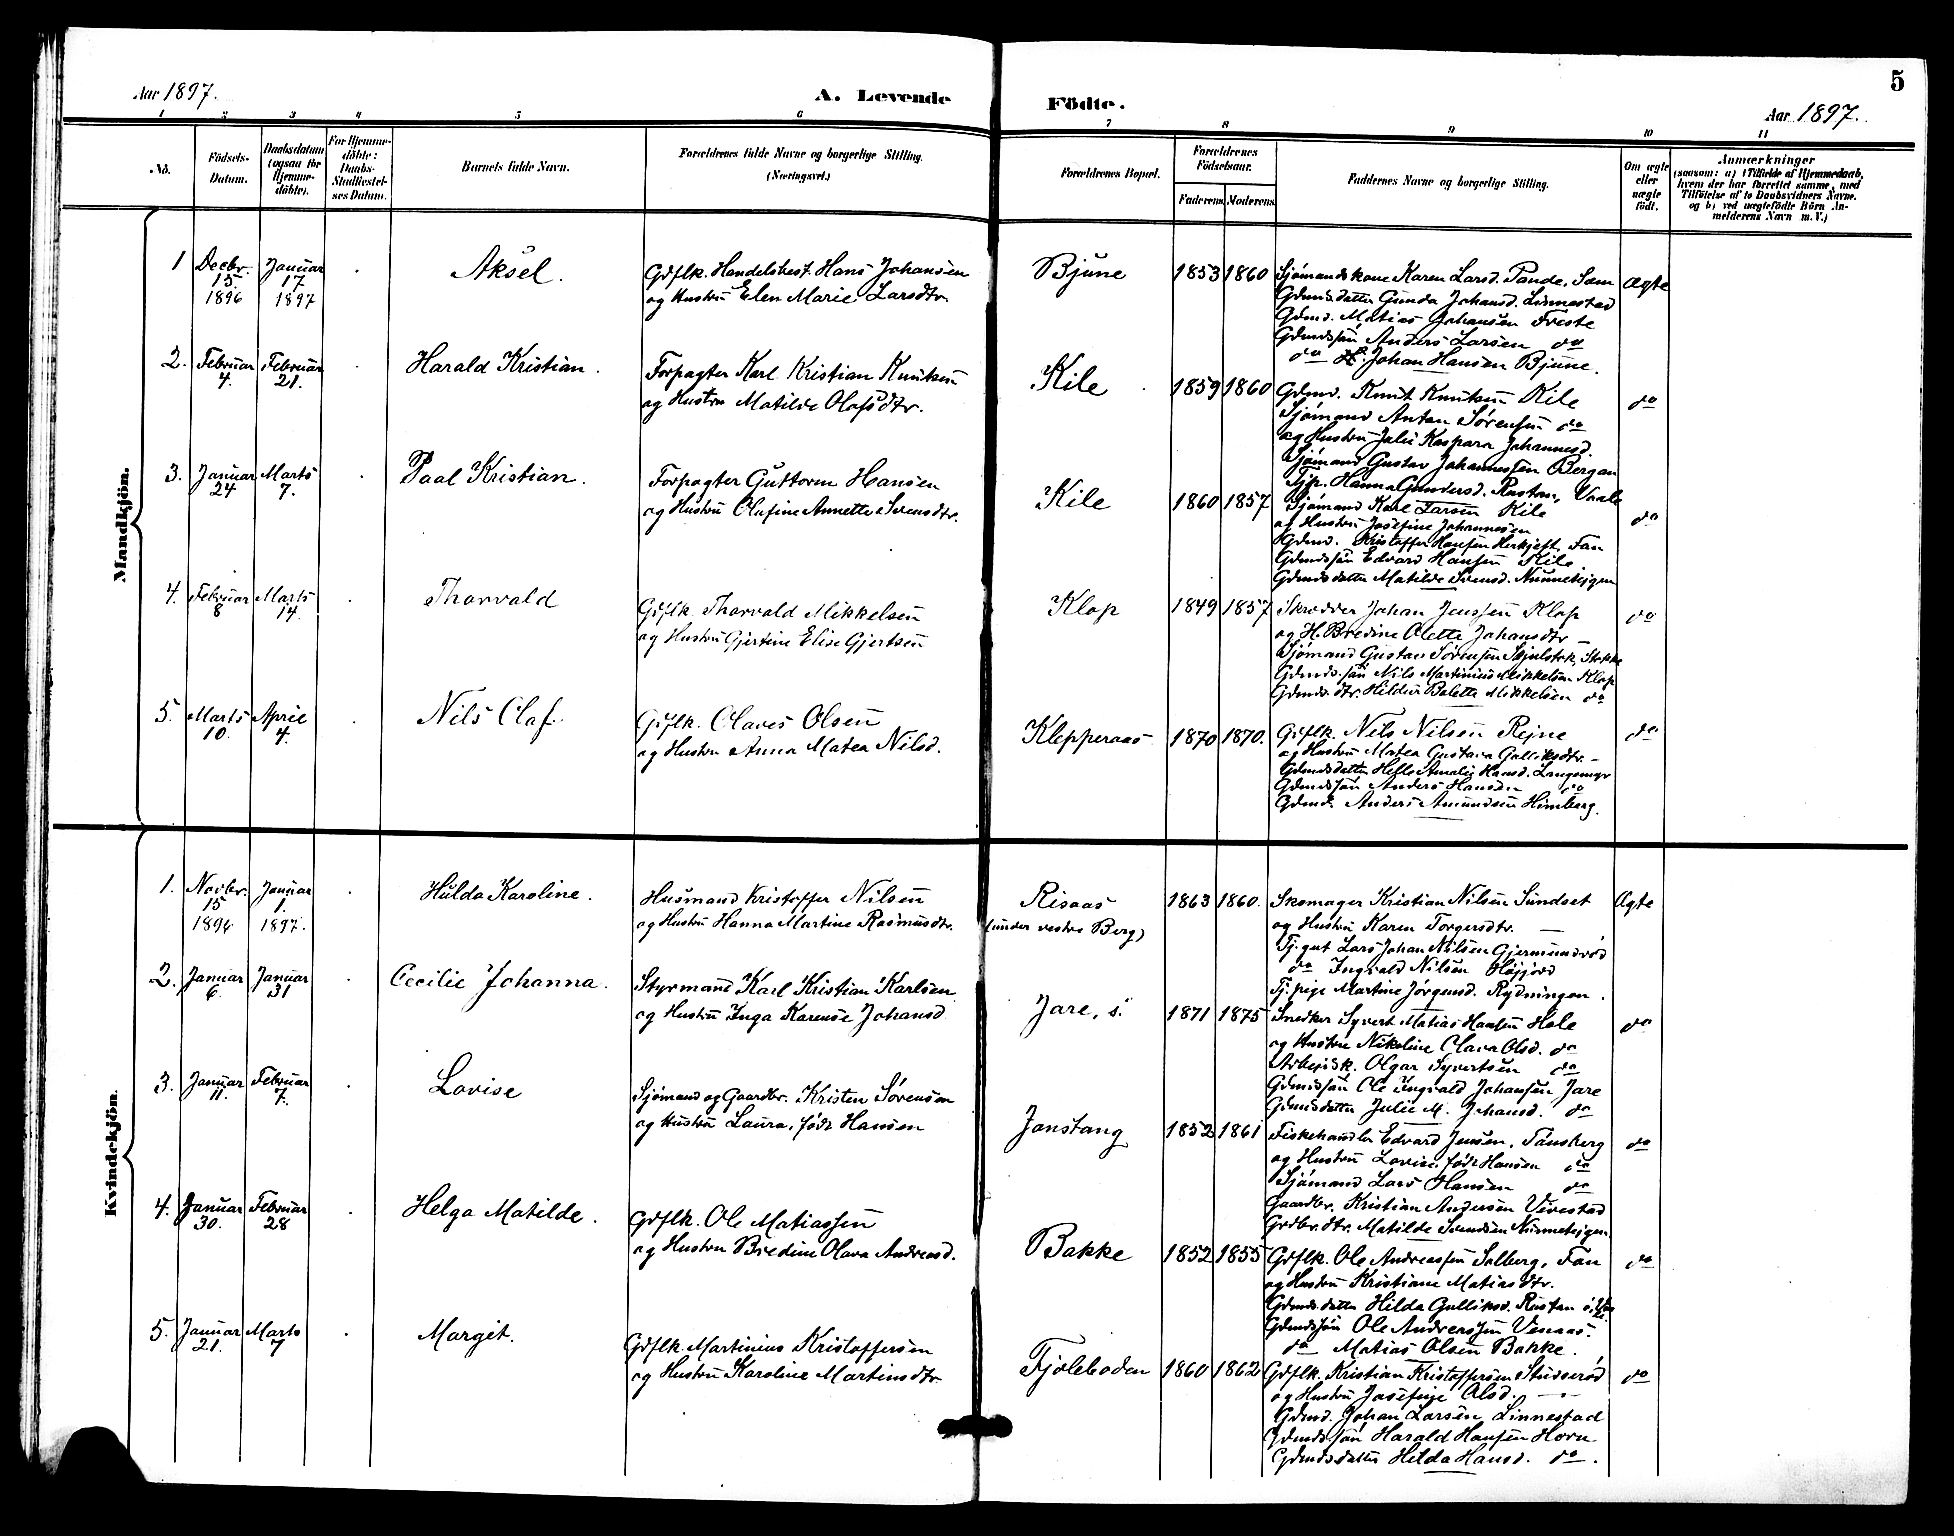 Aar 1897.
A. Levende
Födte.
5
Aar 1897.
1 2 3 4 5 6 7 8 9 10 11
No.
Födsels-Datum.
Daabsdatum (ogsaa för Hjemme-döbte).
For Hjemme-döbte: Daabs-Stadfæstel-ses Datum.
Barnets fulde Navn.
Forældrenes fulde Navne og borgerlige Stilling. (Næringsvei.)
Forældrenes Bopæl.
Forældrenes Födselsaar.
Faderens. Moderens.
Faddernes Navne og borgerlige Stilling.
Om ægte eller uægte födt.
Anmærkninger
(saasom: a) i Tilfælde af Hjemmedaab,
hvem der har forrettet samme, med
Tilföielse af to Daabsvidners Navne.
og b) ved uægtefödte Börn An-
melderens Navn m. V.)
Mandkjön.
1 Decbr. 15 1896 Januar 17 1897 Aksel.
Gdflk. Handelsbest. Hans Johansen
og Hustru Elen Marie Larsdtr.
Bjune 1853 1860
Sjømandskone Karen Larsd. Pande, Sem
Gdmdsdatter Gunda Johansd. Linnestad
Gdmd. Matias Johansen Freste
Gdmdssøn Anders Larsen do
do H. Johan Hansen Bjune.
Ægte
2. Februar 4. Februar 21. Harald Kristian.
Forpagter Karl Kristian Knutsen
og Hustru Matilde Olafsdtr.
Kile 1859 1860
Gdmd. Knut Knutsen Kile
Sjømand Anton Sørensen do
og Hustru Julie Kaspara Johannesd.
Sjømand Gustav Johannessen Bergan
Tjp. Hanna Gundersd. Rastan, Vaale
do
3. Januar 24 Marts 7. Paal Kristian.
Forpagter Guttorm Hansen
og Hustru Olafine Annette Svensdtr.
Kile 1860 1857
Sjømand Karl Larsen Kile
og Hustru Josefine Johannesen
Gdmd. Kristoffer Hansen Herkjest, Fan
Gdmdssøn Edvard Hansen Kile
Gdmdsdatter Matilde Svensd. Nunnetejgen
do
4. Februar 8 Marts 14. Thorvald
Gdflk. Thorvald Mikkelsen
og Hustru Gjertine Elise Gjertsen
Klop 1849 1857
Skrædder Johan Jenssen Klop
og H. Bredine Olette Johansdtr —
Sjømand Gustav Sørensen Skjelstok, Stokke
Gdmdssøn Nils Martinius Mikkelsen Klop
Gdmds.dtr. Hilda Balette Mikkelsen do
do
5. Marts 10. April 4. Nils Olaf.
Gdflk. Olaves Olsen
og Hustru Anna Matea Nilsd.
Klepperaas 1870 1870.
Gdflk. Nils Nilsen Rejne
og Hustru Matea Gustava Gulliksdtr. —
Gdmdsdatter Helle Amalie Hansd. Langemyr
Gdmdssøn Anders Hansen do
Gdmd. Anders Amundsen Himberg.
do
Kvindekjön.
1. Novbr. 15 1896 Januar 1. 1897. Hulda Karoline.
Husmand Kristoffer Nilsen
og Hustru Hanna Martine Rasmusdtr.
Risaas
(under vestre Berg)
1863 1860.
Skomager Kristian Nilsen Sundset
og Hustru Karen Torgersdtr. —
Tj.gut Lars Johan Nilsen Gjermundrød
do Ingvald Nilsen Højjord
Tj.pige Martine Jørgensd. Rydningen.
Ægte
2. Januar 6. Januar 31 Cecilie Johanna.
Styrmand Karl Kristian Karlsen
og Hustru Inga Karense Johansd
Jare, s. 1871 1875
Snedker Syvert Matias Hansen Hole
og Hustru Nikoline Olava Olsd. do
Arbejdsk. Olgar Syvertsen do
Gdmdssøn Ole Ingvald Johansen Jare
Gdmdsdatter Julie M. Johansd. do
do
3. Januar 11. Februar 7. Lovise
Sjømand og Gaardbr. Kristen Sørensen
og Hustru Laura, født Hansen
Jonstang 1852 1861
Fiskehandler Edvard Jensen, Tønsberg
og Hustru Lovise, født Hansen do
Sjømand Lars Hansen do
Gaardbr. Kristian Andersen Vivestad
Grdbr.dtr. Matilde Svendsen Nunnetejgen
do
4. Januar 30. Februar 28 Helga Matilde.
Gdflk. Ole Matiassen
og Hustru Bredine Olava Andreasd.
Bakke 1852 1855
Gdflk. Ole Andreassen Solberg, Fan
og Hustru Kristiane Matiasdtr.
Gdmdsdatter Hilda Gulliksd. Rustan
Gdmdssøn Ole Andreassen Venaas.
do Matias Olsen Bakke.
do
5. Januar 21. Marts 7 Margit.
Gdflk. Martinius Kristoffersen
og Hustru Karoline Martinsdtr
Fjøleboden 1860 1862
Gdflk. Kristian Kristoffersen Studserød
og Hustru Josefine Olsd. —
Gdmd. Johan Larsen Linnestad
Gdmdssøn Harald Hansen Horn
Gdmdsdatter Hilda Hansd. do.
do